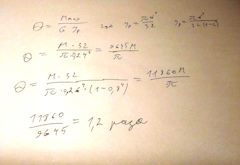 Θ = Mкр / G Jp где Jp = πd⁴ / 32 Jp = πd⁴ / 32(1-c)
Θ = M·32 / π·3,24⁴ = 9645M / π
Θ = M·32 / π·3,26⁴·(1-0,8⁴) = 11860M / π
11860 / 9645 = 1,2 раза